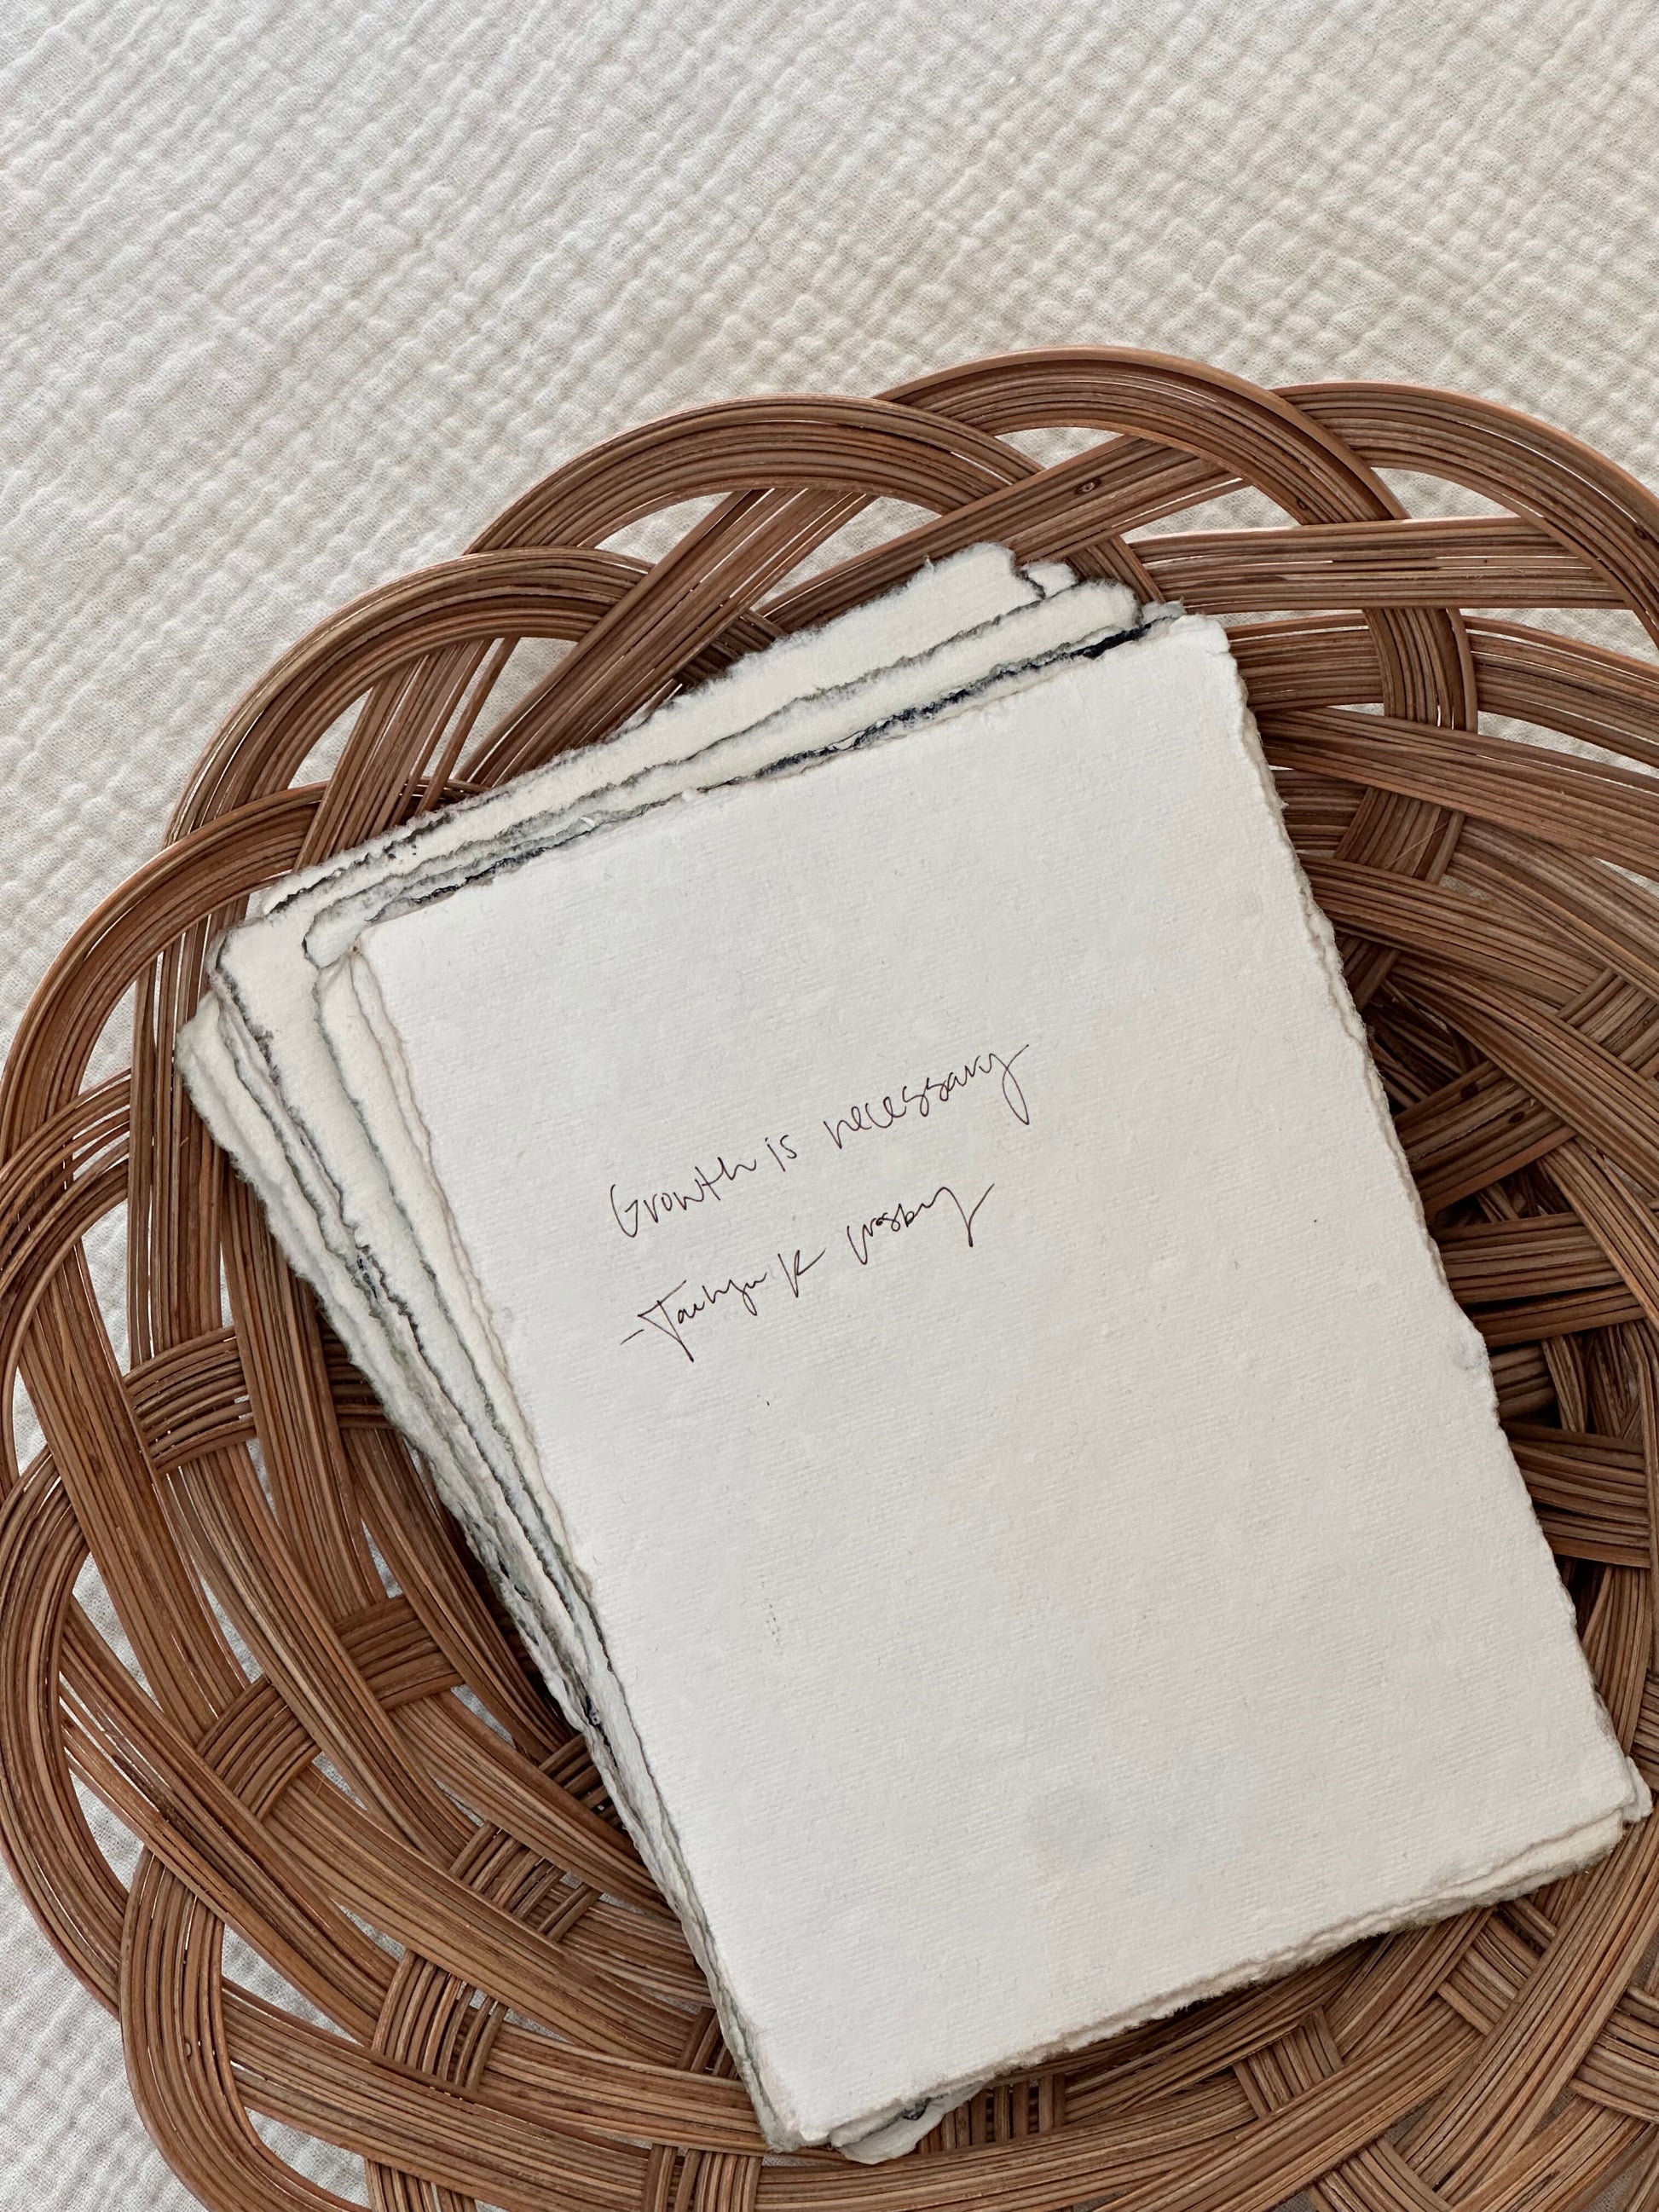 Growth is necessary
- K Crosby